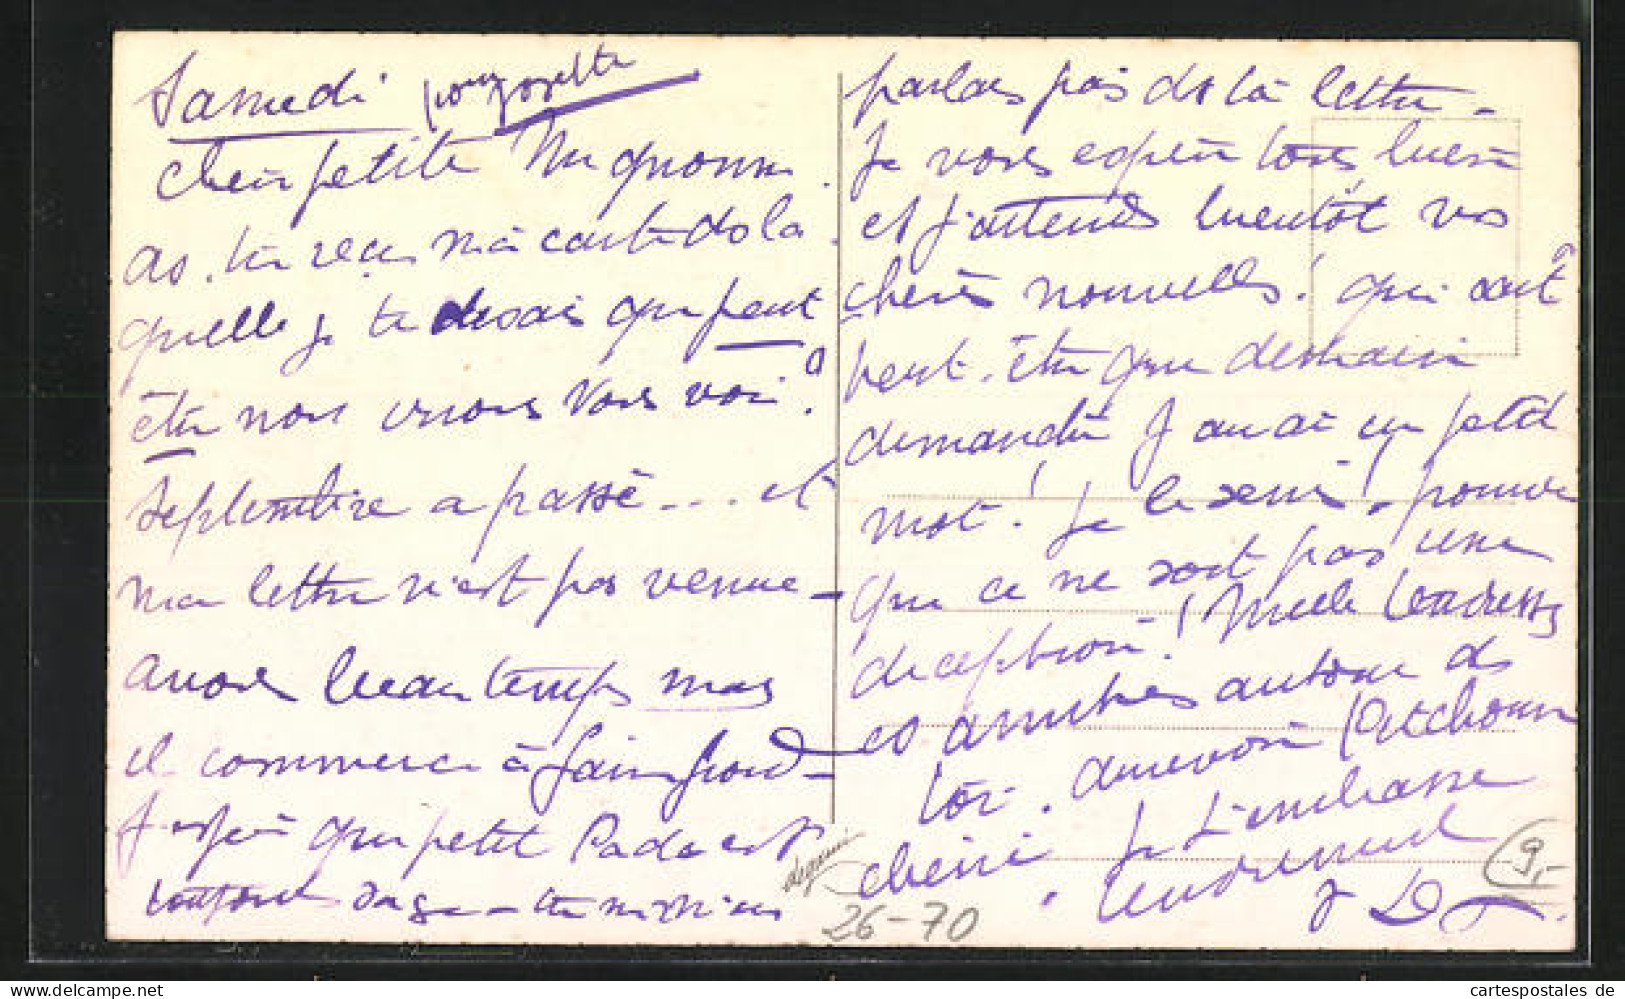 Samedi pour Josette
chère petite Mignonne.
as-tu reçu ma carte de la
quelle je te disais que peut
être nous irions vous voir?
Septembre a passé... et
ma lettre n'est pas venue -
avons beau temps mais
il commence à faire froid -
J'espère que petit Dada est
toujours sage -
parlais pas de ta lettre -
Je vous espère tous bien
et j'attends bientôt vos
chères nouvelles! qui sait
peut-être que demain
dimanche j'aurai un petit
mot! Je le serai! pourvu
que ce ne soit pas une
déception! Mille tendresses
et amitiés autour de
toi. au revoir
chérie Je t'embrasse
tendrement
J D
26-70
9,-
cartespostales de